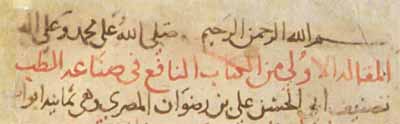 بسم الله الرحمن الرحيم صلى الله على محمد وعلى اله
المقاله الاولى من الكتاب النافع فى صناعه الطب
تصنيف ابى الحسن على بن رضوان المصرى وهى ثمانيه ابواب